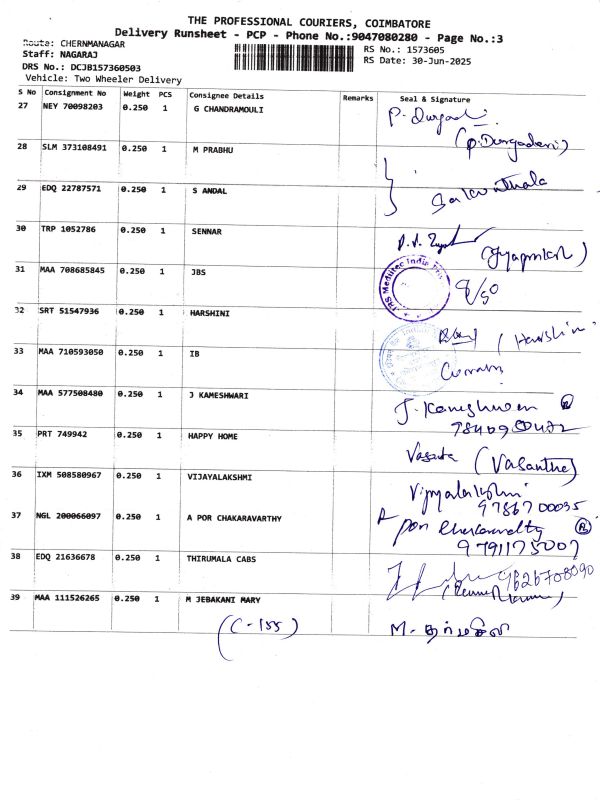 THE PROFESSIONAL COURIERS, COIMBATORE
Delivery Runsheet - PCP - Phone No.:9047080280 - Page No.:3
Route: CHERNMANAGAR
RS No.: 1573605
Staff: NAGARAJ
RS Date: 30-Jun-2025
DRS No.: DCJB157360503
Vehicle: Two Wheeler Delivery
S No Consignment No Weight PCS Consignee Details Remarks Seal & Signature
27 NEY 70098203 0.250 1 G CHANDRAMOULI P. Durgadevi
(P. Durgadevi)
28 SLM 373108491 0.250 1 M PRABHU
29 EDQ 22787571 0.250 1 S ANDAL Sakunthala
30 TRP 1052786 0.250 1 SENNAR
31 MAA 708685845 0.250 1 JBS
32 SRT 51547936 0.250 1 HARSHINI (Harshini
33 MAA 710593050 0.250 1 IB
34 MAA 577508480 0.250 1 J KAMESHWARI J. Kameshwari
35 PRT 749942 0.250 1 HAPPY HOME Vasantha (Vasantha)
36 IXM 508580967 0.250 1 VIJAYALAKSHMI Vijayalakshmi
9786700035
37 NGL 200066097 0.250 1 A POR CHAKARAVARTHY A por
9791175007
38 EDQ 21636678 0.250 1 THIRUMALA CABS 9626708090
39 MAA 111526265 0.250 1 M JEBAKANI MARY
(C-155)